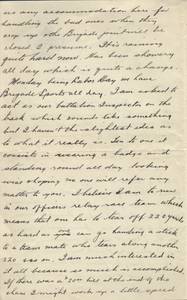 us any accommodation here for
handling the bad ones when they
crop up & the Brigade point will be
closed I presume. It is raining
quite hard now. Has been showery
all day which is quite a change.
Monday being Labor Day we have
Brigade Sports all day. I am asked to
act as our battalion Inspector on the
task which sounds like something
but I haven't the slightest idea as
to what it really is. So to me it
consists in wearing a badge and
standing round all day looking
wise & hoping no one will refer any
matter to you. I believe I am to run
in our officers relay race team which
means that one has to tear off 220 yards
as hard as you can go handing a stick
to a team mate who tears along another
220 & so on. I am much interested in
it all because so much is accomplished.
If there was a $20 bill at the end of the
chase I might work up a little speed